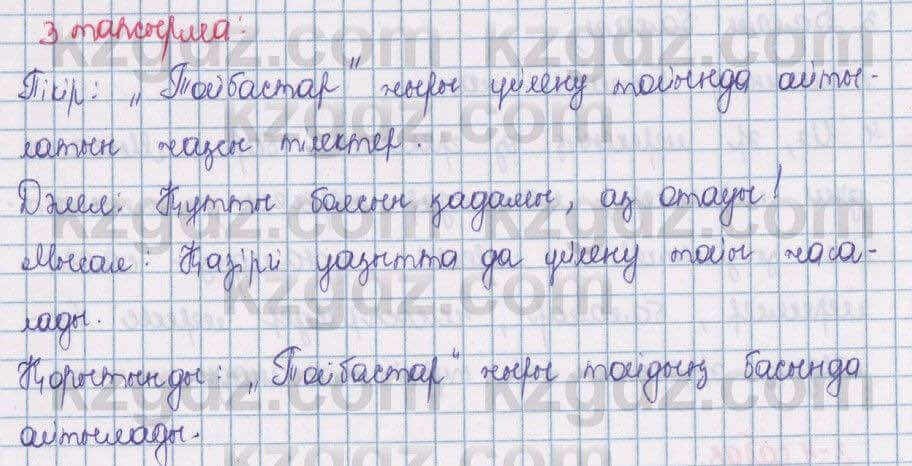 3 тапсырма:
Пікір: „Тойбастар" жыры үйлену тойында айты-
латын жақсы тілектер.
Дәлел: Құтты болсын қадамы, ақ отауы!
Мысал: Қазіргі уақытта да үйлену тойы жаса-
лады.
Қорытынды: „Тойбастар" жыры тойдың басында
айтылады.
kzgdz.com